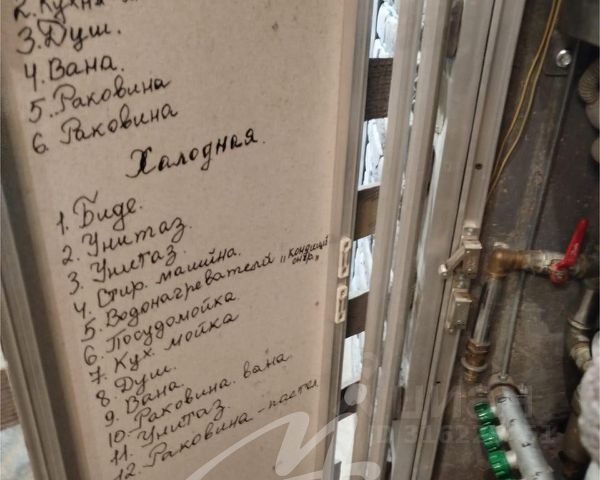 2. Кухня
3. Душ.
4. Вана.
5. Раковина
6. Раковина
Халодная.
1. Биде.
2. Унитаз.
3. Унитаз.
4. Стир. машина.
5. Водонагреватели „кондиционер"
6. Посудомойка.
7. Кух. мойка
8. Душ.
9. Вана.
10. Раковина. вана.
11. Унитаз.
12. Раковина -